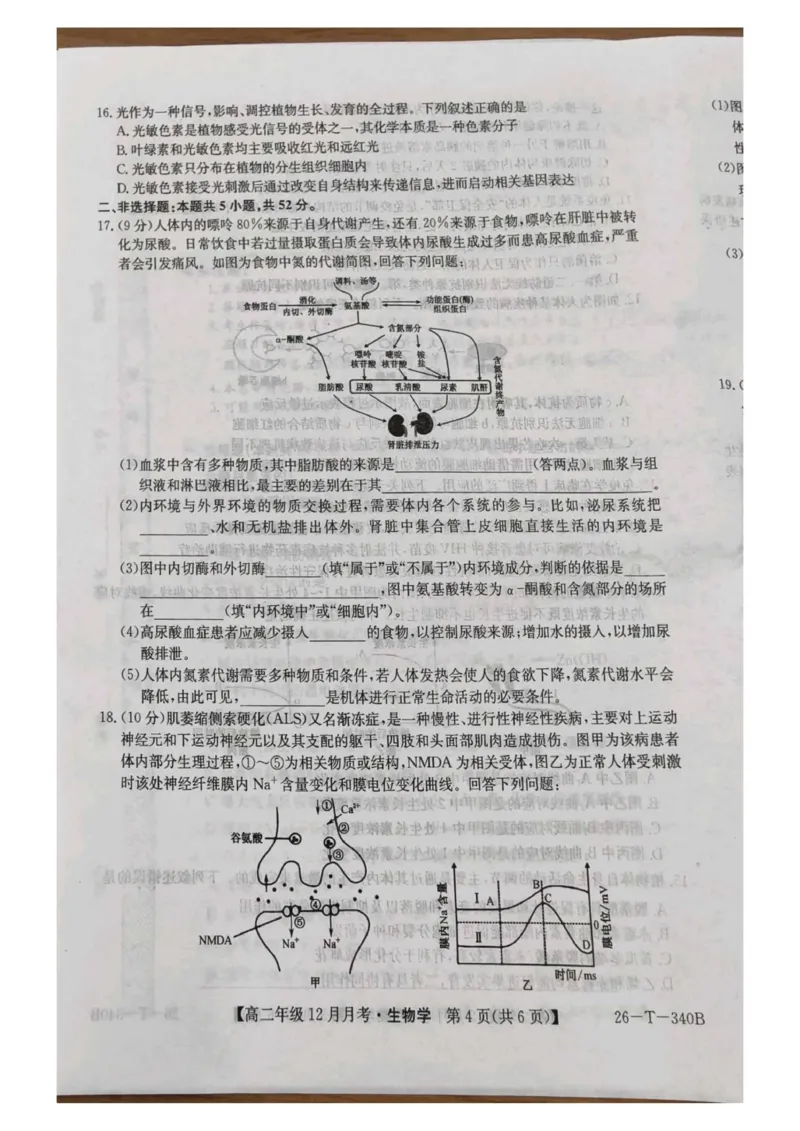 16.光作为一种信号,影响、调控植物生长、发育的全过程。下列叙述正确的是
A.光敏色素是植物感受光信号的受体之一,其化学本质是一种色素分子
B.叶绿素和光敏色素均主要吸收红光和远红光
C.光敏色素只分布在植物的分生组织细胞内
D.光敏色素接受光刺激后通过改变自身结构来传递信息,进而启动相关基因表达
二、非选择题:本题共5小题,共52分。
17.(9分)人体内的嘌呤80%来源于自身代谢产生,还有20%来源于食物,嘌呤在肝脏中被转
化为尿酸。日常饮食中若过量摄取蛋白质会导致体内尿酸生成过多而患高尿酸血症,严重
者会引发痛风。如图为食物中氮的代谢简图,回答下列问题:
调料、汤等
食物蛋白 消化 内切、外切酶 氨基酸 功能蛋白(酶) 组织蛋白
α-酮酸 含氮部分
嘌呤核苷酸 嘧啶核苷酸 铵盐
脂肪酸 尿酸 乳清酸 尿素 肌酐
含氮代谢终产物
肾脏排泄压力
(1)血浆中含有多种物质,其中脂肪酸的来源是________(答两点)。血浆与组
织液和淋巴液相比,最主要的差别在于其________。
(2)内环境与外界环境的物质交换过程,需要体内各个系统的参与。比如,泌尿系统把
________、水和无机盐排出体外。肾脏中集合管上皮细胞直接生活的内环境是
________。
(3)图中内切酶和外切酶________(填“属于”或“不属于”)内环境成分,判断的依据是________
________,图中氨基酸转变为α-酮酸和含氮部分的场所
在________(填“内环境中”或“细胞内”)。
(4)高尿酸血症患者应减少摄人________的食物,以控制尿酸来源;增加水的摄人,以增加尿
酸排泄。
(5)人体内氮素代谢需要多种物质和条件,若人体发热会使人的食欲下降,氮素代谢水平会
降低,由此可见,________是机体进行正常生命活动的必要条件。
18.(10分)肌萎缩侧索硬化(ALS)又名渐冻症,是一种慢性、进行性神经性疾病,主要对上运动
神经元和下运动神经元以及其支配的躯干、四肢和头面部肌肉造成损伤。图甲为该病患者
体内部分生理过程,①~⑤为相关物质或结构,NMDA为相关受体,图乙为正常人体受刺激
时该处神经纤维膜内Na⁺含量变化和膜电位变化曲线。回答下列问题:
① Ca²⁺
②
谷氨酸
③
④
⑤
NMDA Na⁺ Na⁺
甲
膜内Na⁺含量 Ⅰ A B C Ⅱ D 0 膜电位/mV
时间/ms
乙
【高二年级12月月考·生物学 第4页(共6页)】 26-T-340B
(1)图
体
性
(2)图
(3)
19.(